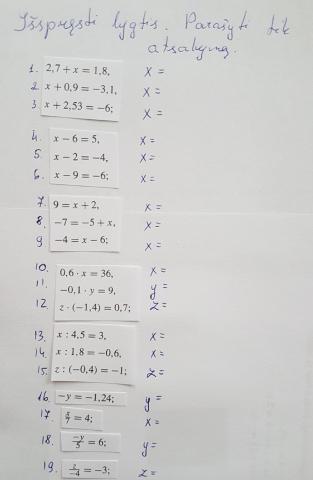 Išspręsti lygtis. Parašyti tik
atsakymą.
1. 2,7 + x = 1,8, x =
2. x + 0,9 = −3,1, x =
3. x + 2,53 = −6; x =
4. x − 6 = 5, x =
5. x − 2 = −4, x =
6. x − 9 = −6; x =
7. 9 = x + 2, x =
8. −7 = −5 + x, x =
9 −4 = x − 6; x =
10. 0,6 · x = 36, x =
11. −0,1 · y = 9, y =
12. z · (−1,4) = 0,7; z =
13. x : 4,5 = 3, x =
14. x : 1,8 = −0,6, x =
15. z : (−0,4) = −1; z =
16. −y = −1,24; y =
17. x/7 = 4; x =
18. −y/5 = 6; y =
19. z/−4 = −3; z =